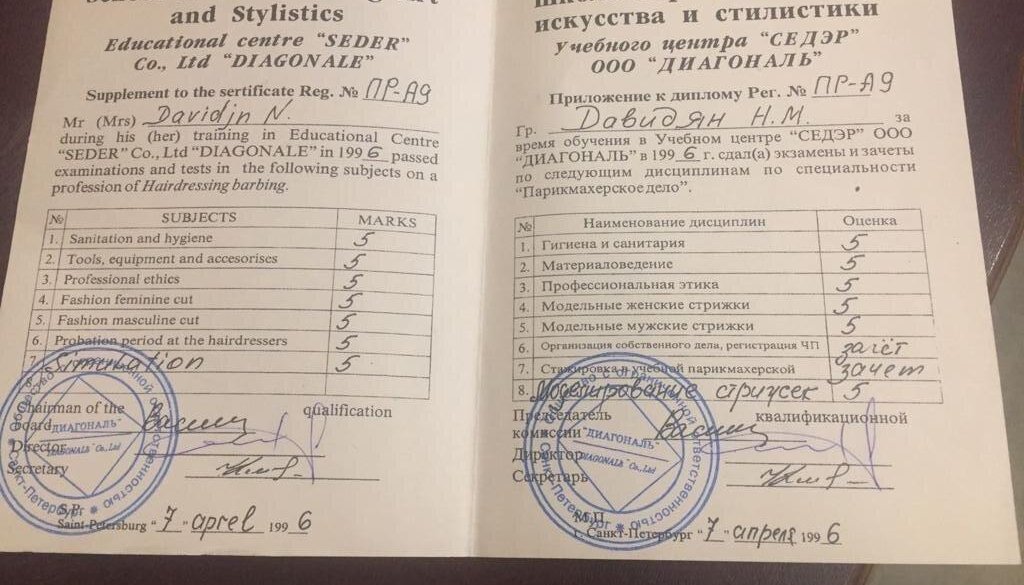 and Stylistics
Educational centre "SEDER"
Co., Ltd "DIAGONALE"
Supplement to the sertificate Reg. № ПР-А9
Mr (Mrs) Davidjn N.
during his (her) training in Educational Centre
"SEDER" Co., Ltd "DIAGONALE" in 1996 passed
examinations and tests in the following subjects on a
profession of Hairdressing barbing.
№ SUBJECTS MARKS
1. Sanitation and hygiene 5
2. Tools, equipment and accesorises 5
3. Professional ethics 5
4. Fashion feminine cut 5
5. Fashion masculine cut 5
6. Probation period at the hairdressers 5
7. Simulation 5
Chairman of the qualification
board
Director
Secretary
S.P.
Saint-Petersburg "7" aprel 1996
ДИАГОНАЛЬ
DIAGONALE Co., Ltd
Санкт-Петербург
искусства и стилистики
учебного центра "СЕДЭР"
ООО "ДИАГОНАЛЬ"
Приложение к диплому Рег. № ПР-А9
Гр. Давидян Н.М. за
время обучения в Учебном центре "СЕДЭР" ООО
"ДИАГОНАЛЬ" в 1996 г. сдал(а) экзамены и зачеты
по следующим дисциплинам по специальности
"Парикмахерское дело".
№ Наименование дисциплин Оценка
1. Гигиена и санитария 5
2. Материаловедение 5
3. Профессиональная этика 5
4. Модельные женские стрижки 5
5. Модельные мужские стрижки 5
6. Организация собственного дела, регистрация ЧП зачёт
7. Стажировка в учебной парикмахерской зачет
8. Моделирование стрижек 5
Председатель квалификационной
комиссии
Директор
Секретарь
М.П.
г. Санкт-Петербург "7" апреля 1996
"ДИАГОНАЛЬ"
DIAGONALE Co., Ltd
Санкт-Петербург